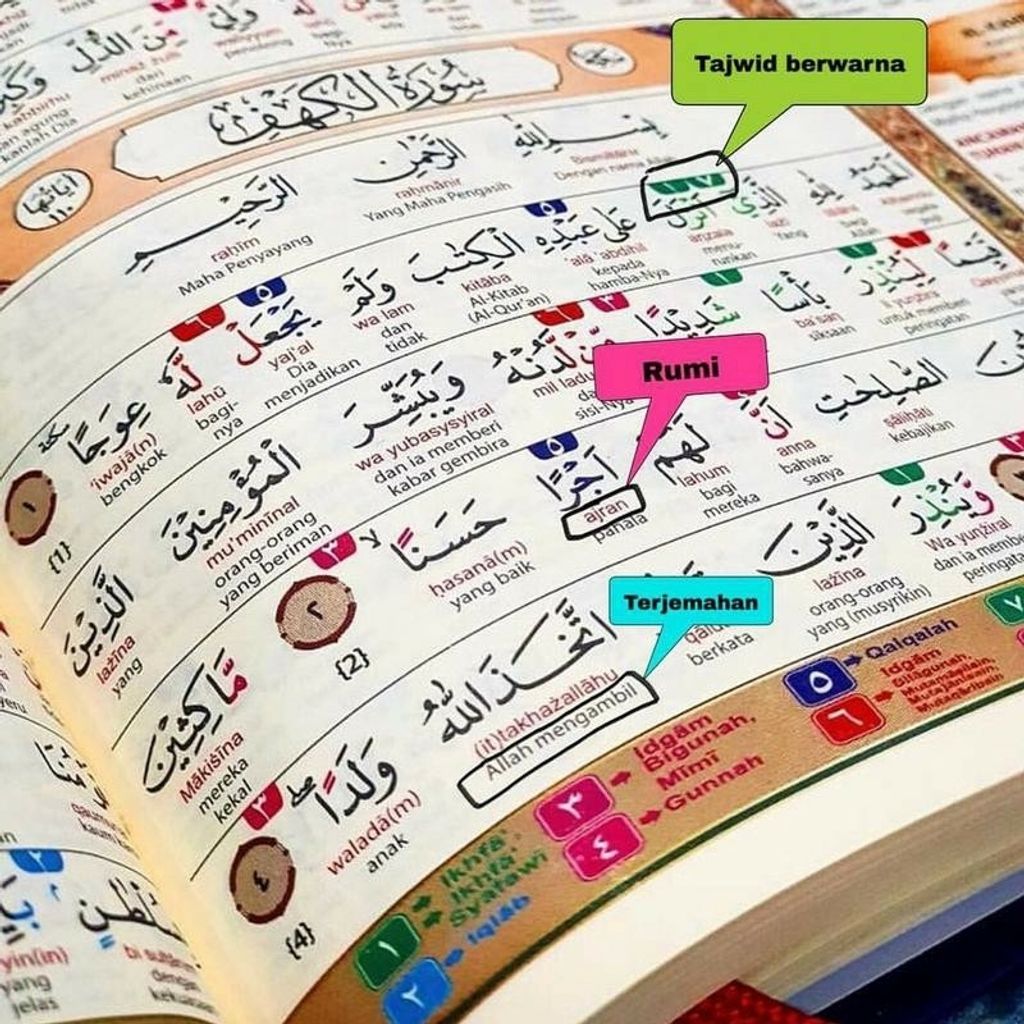 مِنَ الذُّلِّ
minaż żulli
dari
kehinaan
سُوْرَةُ الْكَهْفِ
اٰيَاتُهَا ١١٠
Tajwid berwarna
بِسْمِ اللّٰهِ الرَّحْمٰنِ الرَّحِيْمِ
Bismillāhir raḥmānir raḥīm
Dengan nama Allah Yang Maha Pengasih Maha Penyayang
اَلْحَمْدُ لِلّٰهِ الَّذِيْٓ اَنْزَلَ عَلٰى عَبْدِهِ الْكِتٰبَ وَلَمْ يَجْعَلْ لَّهٗ عِوَجًا ۜ ١
lażī anzala 'alā 'abdihil kitāba wa lam yaj'al lahū 'iwajā(n)
Yang menu-runkan kepada hamba-Nya Al-Kitab (Al-Qur'an) dan tidak Dia menjadikan bagi-nya bengkok
{1}
قَيِّمًا لِّيُنْذِرَ بَأْسًا شَدِيْدًا مِّنْ لَّدُنْهُ وَيُبَشِّرَ الْمُؤْمِنِيْنَ الَّذِيْنَ
li yunżira ba'san mil ladu wa yubasysyiral mu'minīnal lażīna
untuk memberi peringatan siksaan sisi-Nya dan ia memberi kabar gembira orang-orang yang beriman yang
Rumi
الصّٰلِحٰتِ اَنَّ لَهُمْ اَجْرًا حَسَنًا ۙ ٢ مَّاكِثِيْنَ
ṣāliḥāti anna lahum ajran ḥasanā(m) Mākiṡīna
kebajikan bahwa-sanya bagi mereka pahala yang baik mereka kekal
{2}
وَّيُنْذِرَ الَّذِيْنَ اتَّخَذَ اللّٰهُ وَلَدًا ۖ ٤
Wa yunżiral lażīna qālu (it)takhażallāhu waladā(m)
dan ia membe peringata orang-orang yang (musyrikin) berkata Allah mengambil anak
{4}
Terjemahan
١ Ikhfā', Ikhfā' Syafawī
٢ Iqlāb
٣ Idgām Bigunah, Mimi
٤ Gunnah
٥ Qalqalah
٦ Idgām Bilāgunah, Mutamāṡilain, Mutajānisain, Mutaqāribain
٧
yin(in)
yang
jelas
bi sulṭān